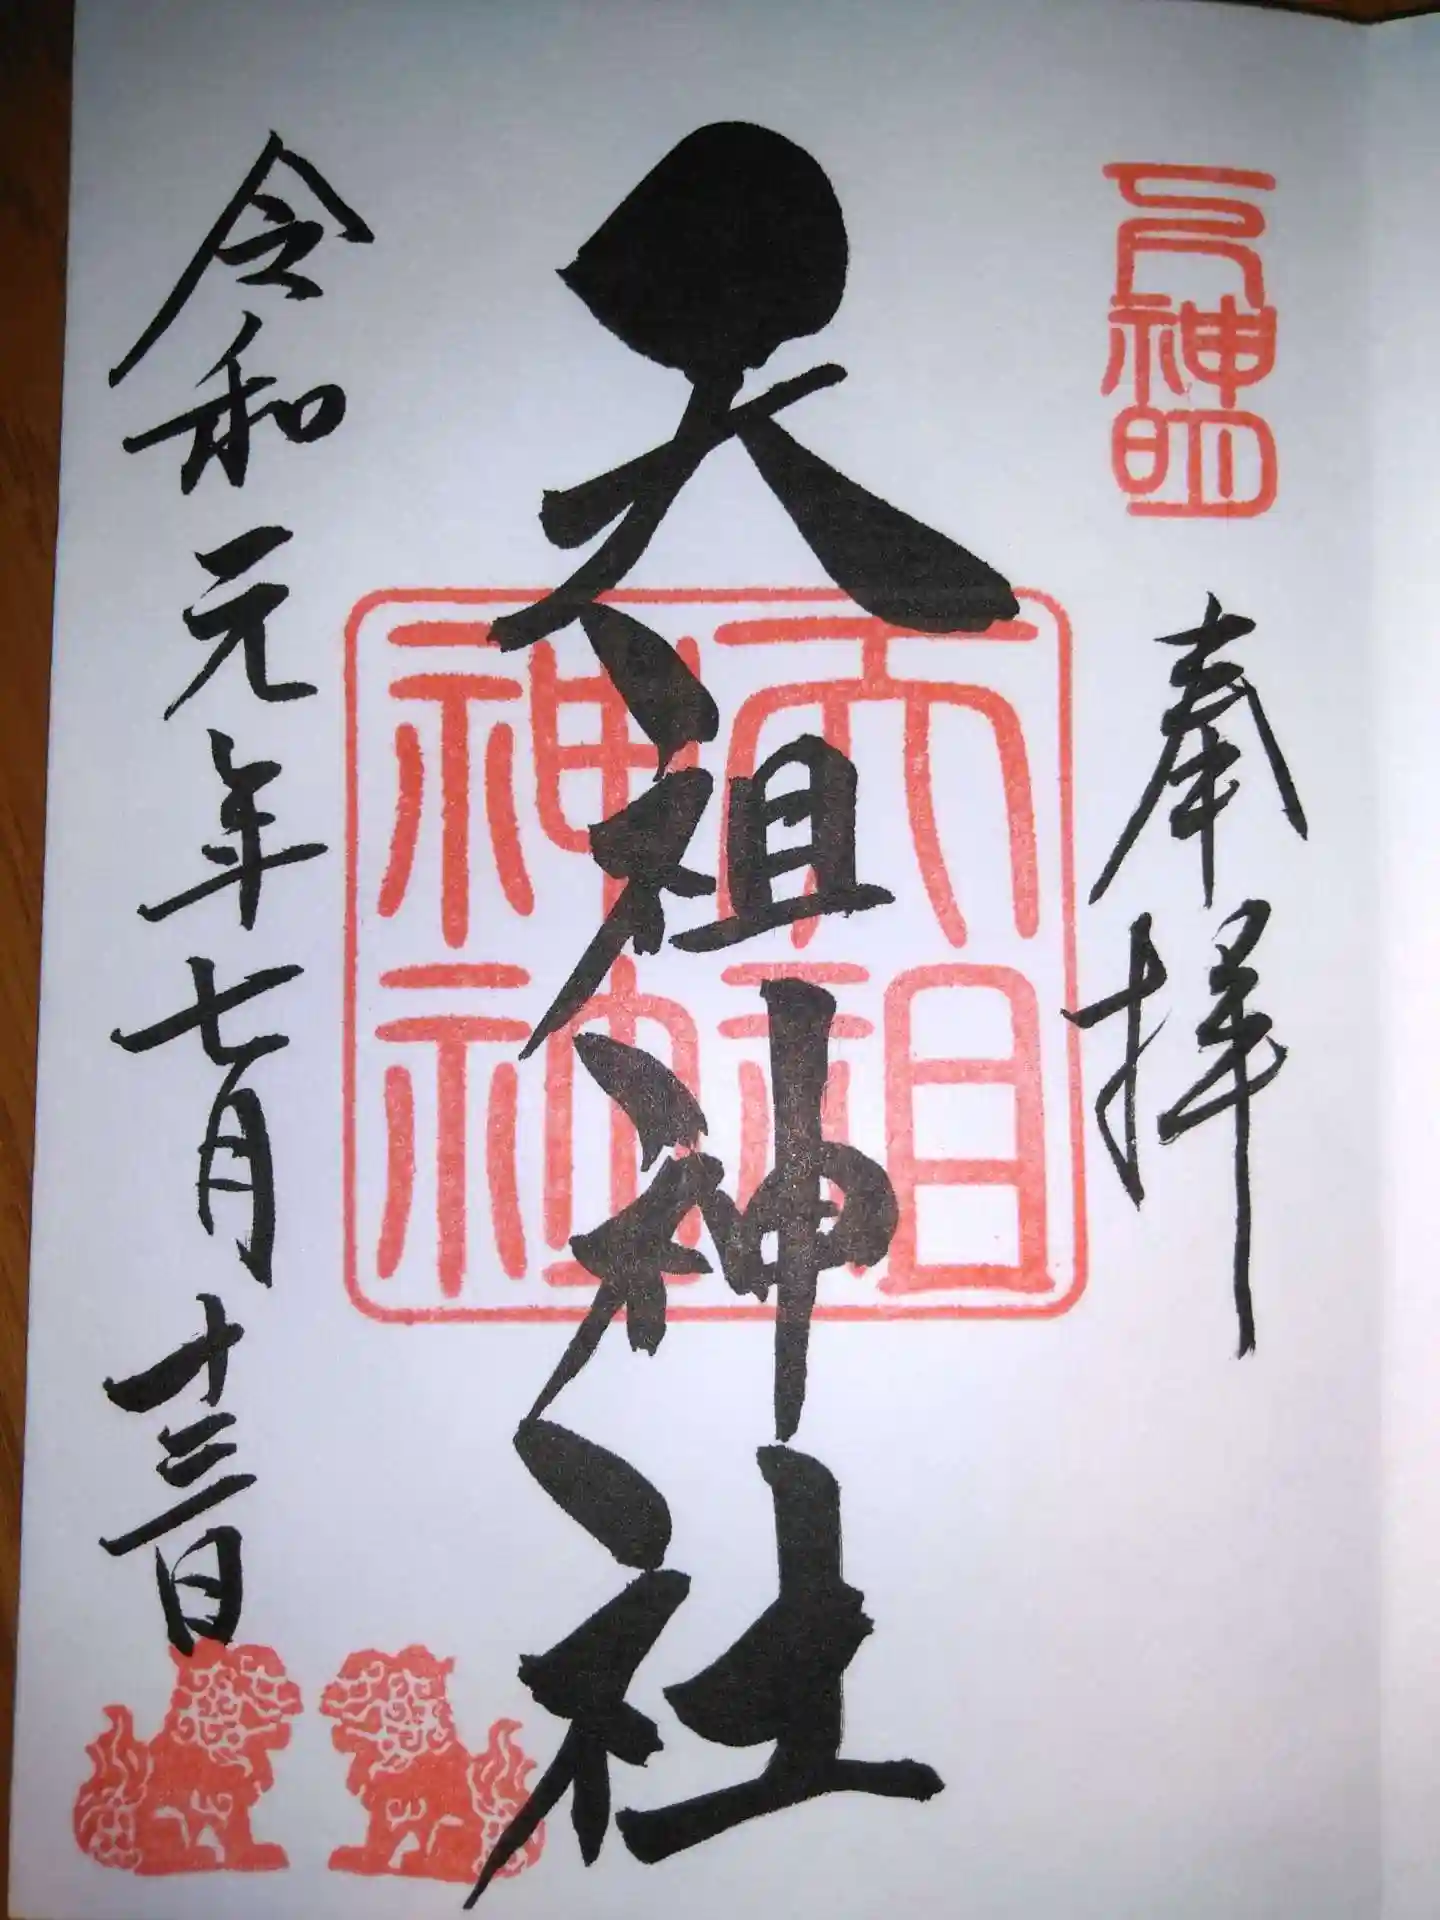 元神明
奉拝
天祖神社
天祖神社
令和元年七月十三日